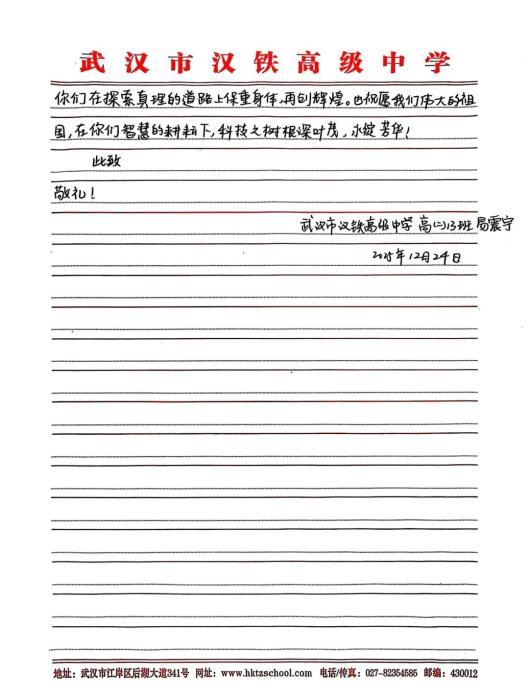 武汉市汉铁高级中学
你们在探索真理的道路上保重身体,再创辉煌。也祝愿我们伟大的祖
国,在你们智慧的耕耘下,科技之树根深叶茂,永绽芳华!
此致
敬礼!
武汉市汉铁高级中学 高(二)13班 局震宇
2025年12月24日
地址:武汉市江岸区后湖大道341号 网址:www.hktzschool.com 电话/传真:027-82354585 邮编:430012